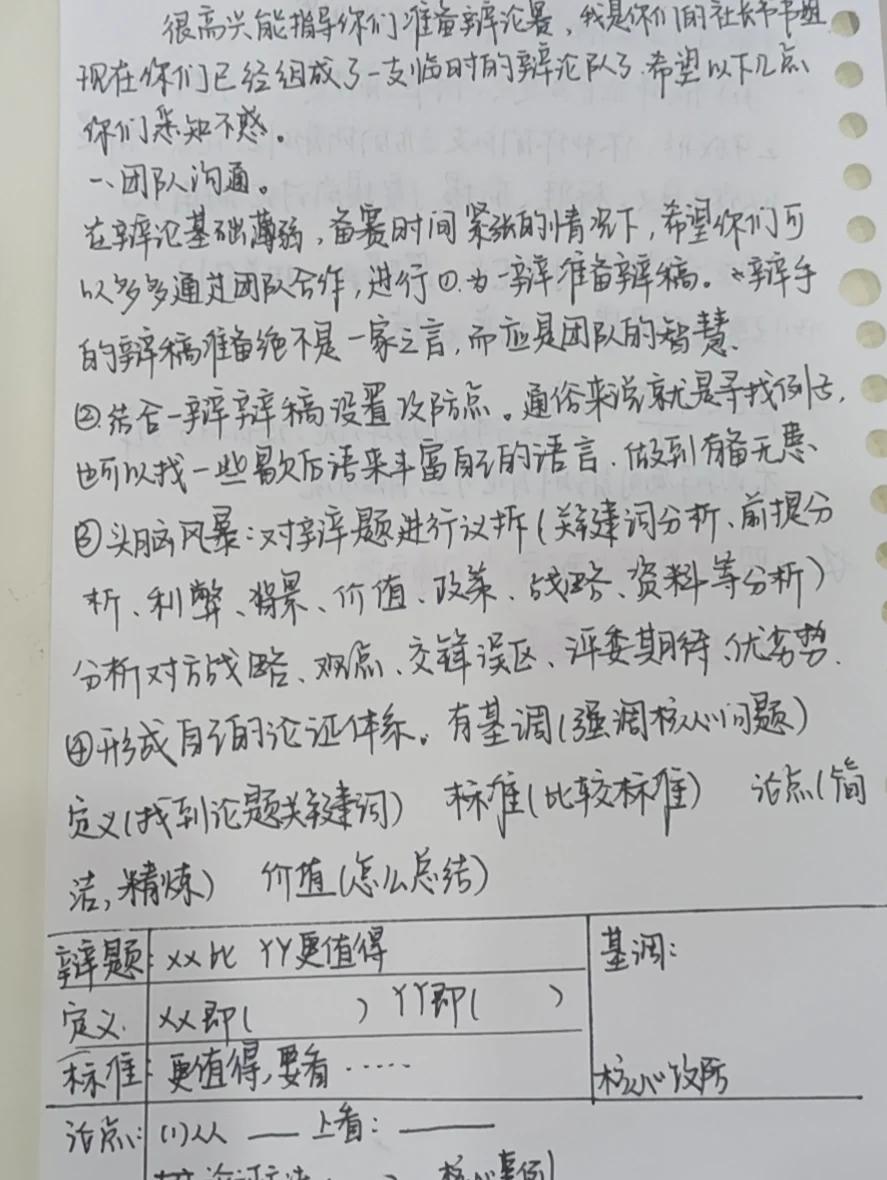 很高兴能指导你们准备辩论赛，我是你们的社长
现在你们已经组成了一支临时的辩论队了.希望以下几点
你们悉知不惑。
一、团队沟通。
在辩论基础薄弱，备赛时间紧张的情况下，希望你们可
以多多通过团队合作，进行①.为一辩准备辩稿。一辩手
的辩稿准备绝不是一家之言，而应是团队的智慧.
②结合一辩辩稿设置攻防点。通俗来说就是寻找例子，
也可以找一些歇后语来丰富自己的语言.做到有备无患
③头脑风暴：对辩题进行议拆(关键词分析、前提分
析、利弊、背景、价值、政策、战略、资料等分析)
分析对方战略、观点、交锋误区、评委期待、优劣势.
④形成自己的论证体系。有基调(强调核心问题)
定义(找到论题关键词) 标准(比较标准) 论点(简
洁,精炼) 价值(怎么总结)
辩题: XX比 YY更值得 基调:
定义. XX即( ) YY即( )
标准: 更值得,要看 ····· 核心攻防
论点: (1)从 —— 上看: ————
论证方法 核心事例